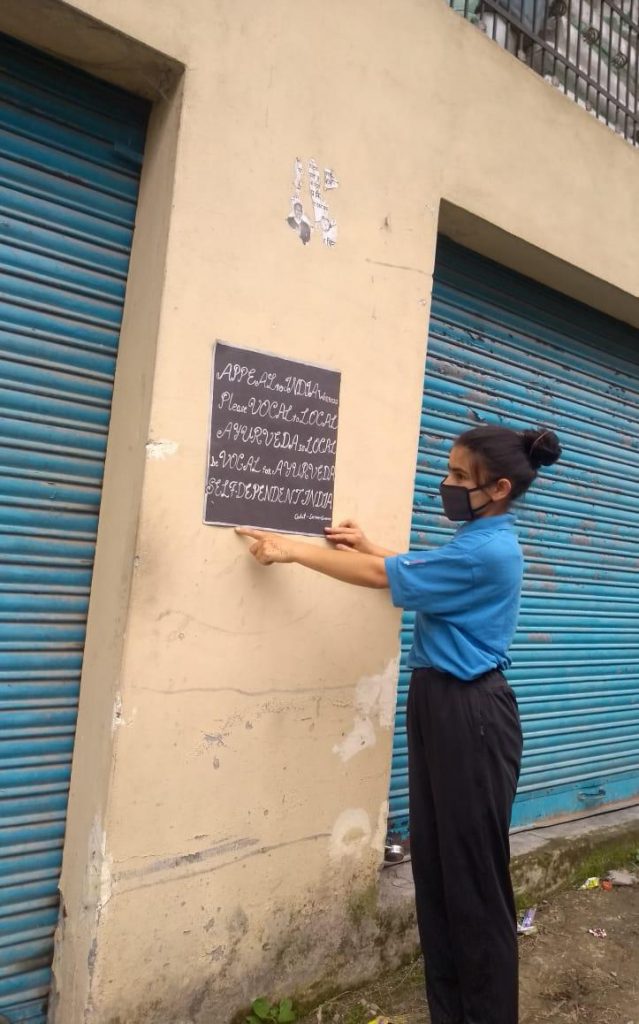 APPEAL to INDIA
Please VOCAL to LOCAL
AYURVEDA is LOCAL
be VOCAL for AYURVEDA
SELF DEPENDENT INDIA